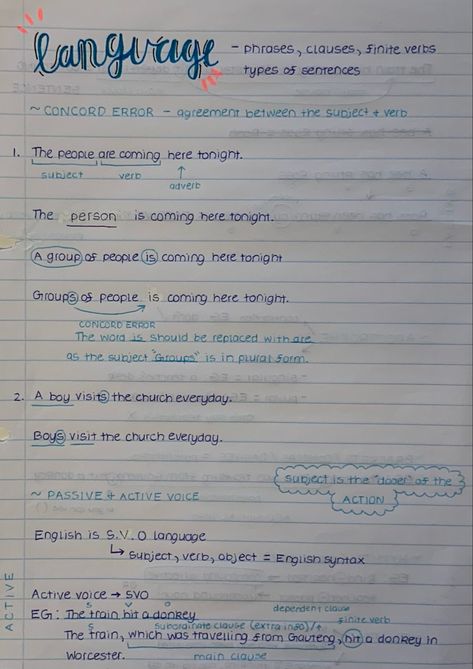 language - phrases, clauses, finite verbs
types of sentences
~ CONCORD ERROR - agreement between the subject + verb
1. The people are coming here tonight.
subject verb ↑
adverb
The person is coming here tonight.
A group of people is coming here tonight
Groups of people is coming here tonight.
CONCORD ERROR
The word is should be replaced with are
as the subject "Groups" is in plural form.
2. A boy visits the church everyday.
Boys visit the church everyday.
subject is the "dooer" of the
ACTION
~ PASSIVE & ACTIVE VOICE
English is S.V.O language
↳ subject, verb, object = English syntax
ACTIVE
Active voice → SVO
S V O
EG: The train hit a donkey
dependent clause
S subordinate clause (extra info)/↑ finite verb
The train, which was travelling from Gauteng, hit a donkey in
Worcester. main clause